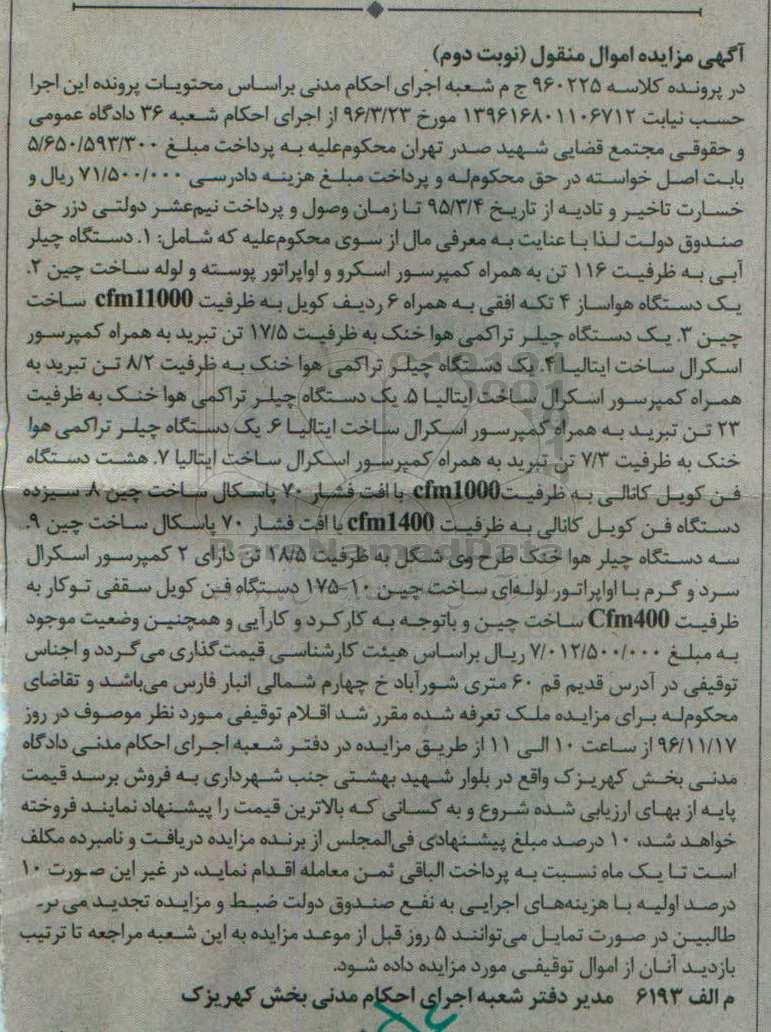 آگهی مزایده اموال منقول (نوبت دوم)
در پرونده کلاسه ۹۶۰۲۲۵ ج م شعبه اجرای احکام مدنی براساس محتویات پرونده این اجرا
حسب نیابت ۱۳۹۶۱۶۸۰۱۱۰۶۷۱۲ مورخ ۹۶/۳/۲۳ از اجرای احکام شعبه ۳۶ دادگاه عمومی
و حقوقی مجتمع قضایی شهید صدر تهران محکوم‌علیه به پرداخت مبلغ ۵/۶۵۰/۵۹۳/۳۰۰
بابت اصل خواسته در حق محکوم‌له و پرداخت مبلغ هزینه دادرسی ۷۱/۵۰۰/۰۰۰ ریال و
خسارت تاخیر و تادیه از تاریخ ۹۵/۳/۴ تا زمان وصول و پرداخت نیم‌عشر دولتی دزر حق
صندوق دولت لذا با عنایت به معرفی مال از سوی محکوم‌علیه که شامل: ۱. دستگاه چیلر
آبی به ظرفیت ۱۱۶ تن به همراه کمپرسور اسکرو و اواپراتور پوسته و لوله ساخت چین ۲.
یک دستگاه هواساز ۴ تکه افقی به همراه ۶ ردیف کویل به ظرفیت cfm11000 ساخت
چین ۳. یک دستگاه چیلر تراکمی هوا خنک به ظرفیت ۱۷/۵ تن تبرید به همراه کمپرسور
اسکرال ساخت ایتالیا ۴. یک دستگاه چیلر تراکمی هوا خنک به ظرفیت ۸/۲ تن تبرید به
همراه کمپرسور اسکرال ساخت ایتالیا ۵. یک دستگاه چیلر تراکمی هوا خنک به ظرفیت
۲۳ تن تبرید به همراه کمپرسور اسکرال ساخت ایتالیا ۶. یک دستگاه چیلر تراکمی هوا
خنک به ظرفیت ۷/۳ تن تبرید به همراه کمپرسور اسکرال ساخت ایتالیا ۷. هشت دستگاه
فن کویل کانالی به ظرفیت cfm1000 با افت فشار ۷۰ پاسکال ساخت چین ۸. سیزده
دستگاه فن کویل کانالی به ظرفیت cfm1400 با افت فشار ۷۰ پاسکال ساخت چین ۹.
سه دستگاه چیلر هوا خنک طرح وی شکل به ظرفیت ۱۸/۵ تن دارای ۲ کمپرسور اسکرال
سرد و گرم با اواپراتور لوله‌ای ساخت چین ۱۰-۱۷۵ دستگاه فن کویل سقفی توکار به
ظرفیت Cfm400 ساخت چین و باتوجه به کارکرد و کارآیی و همچنین وضعیت موجود
به مبلغ ۷/۰۱۲/۵۰۰/۰۰۰ ریال براساس هیئت کارشناسی قیمت‌گذاری می‌گردد و اجناس
توقیفی در آدرس قدیم قم ۶۰ متری شورآباد خ چهارم شمالی انبار فارس می‌باشد و تقاضای
محکوم‌له برای مزایده ملک تعرفه شده مقرر شد اقلام توقیفی مورد نظر موصوف در روز
۹۶/۱۱/۱۷ از ساعت ۱۰ الی ۱۱ از طریق مزایده در دفتر شعبه اجرای احکام مدنی دادگاه
مدنی بخش کهریزک واقع در بلوار شهید بهشتی جنب شهرداری به فروش برسد قیمت
پایه از بهای ارزیابی شده شروع و به کسانی که بالاترین قیمت را پیشنهاد نمایند فروخته
خواهد شد، ۱۰ درصد مبلغ پیشنهادی فی‌المجلس از برنده مزایده دریافت و نامبرده مکلف
است تا یک ماه نسبت به پرداخت الباقی ثمن معامله اقدام نماید، در غیر این صورت ۱۰
درصد اولیه با هزینه‌های اجرایی به نفع صندوق دولت ضبط و مزایده تجدید می بر.
طالبین در صورت تمایل می‌توانند ۵ روز قبل از موعد مزایده به این شعبه مراجعه تا ترتیب
بازدید آنان از اموال توقیفی مورد مزایده داده شود.
م الف ۶۱۹۳ مدیر دفتر شعبه اجرای احکام مدنی بخش کهریزک